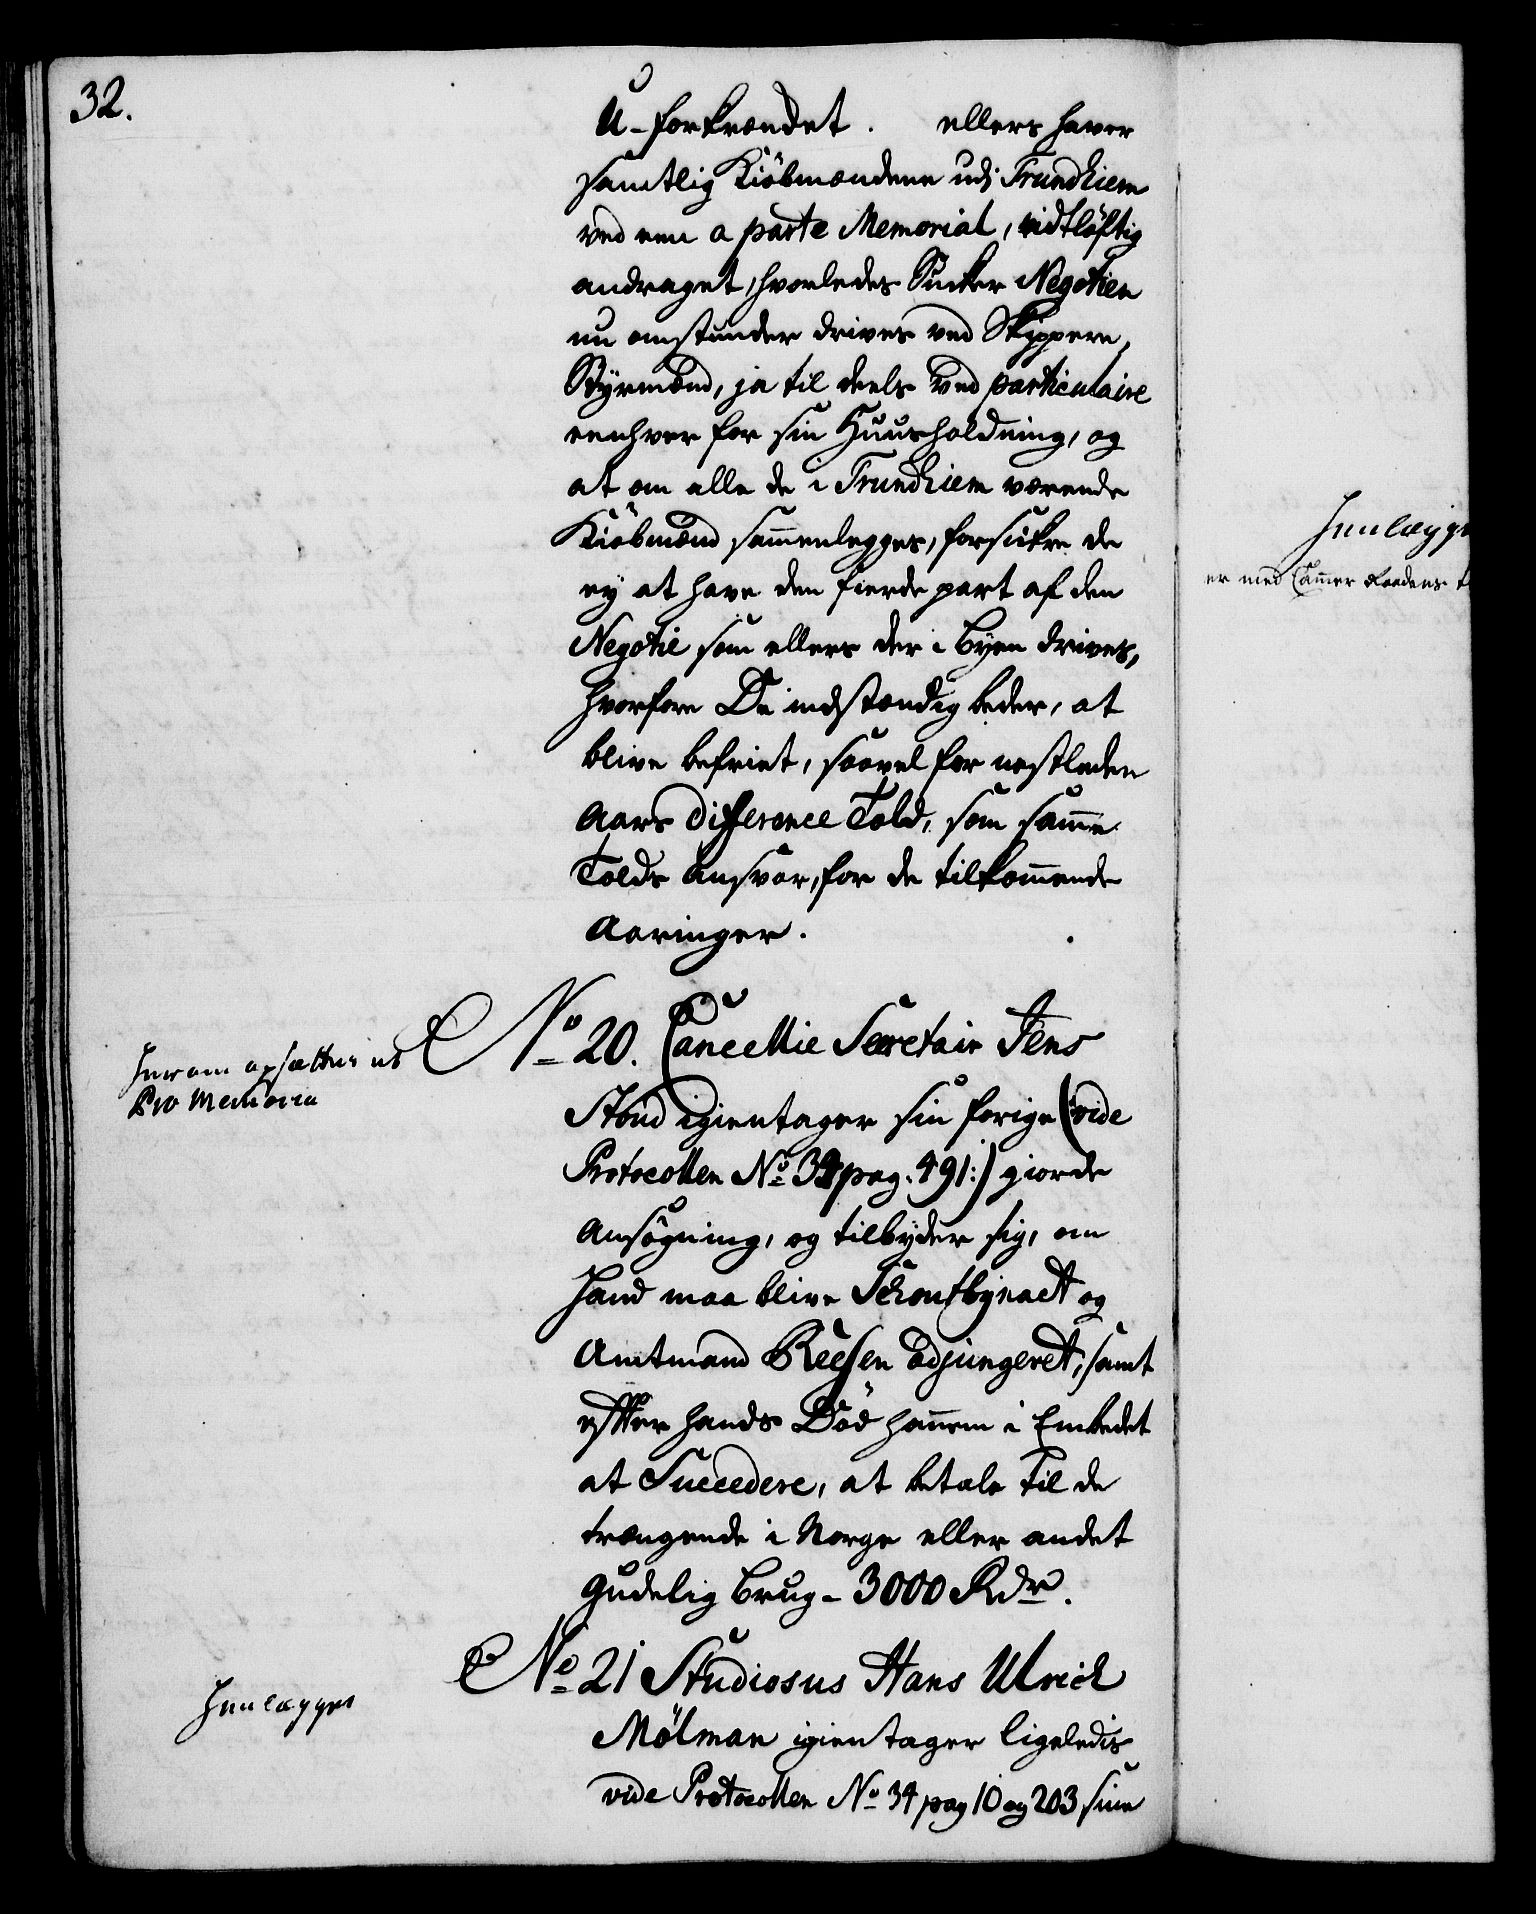 32.
U-forkrændet. ellers haver
samtlig Kiöbmændene udj Trundhiem
ved een a parte Memorial, vidtløftig
andraget, hvorledes Sucker Negotien
nu omstunder drives ved Skippere,
Styrmænd, ja til deels ved particulaire
eenhver for sin Huusholdning, og
at om alle de i Trundhiem værende
Kiöbmænd sam̄enlegges, forsickre de
ey at have den fierde part af den
Negotie som ellers der i Byen drives,
hvorfore De indstændig beder, at
blive befriet, saavel for nestleden
Aars Difference Told, som sam̄e
Tolds Ansvar, for de tilkom̄ende
Aaringer.
No 20. Cancellie Secretair Jens
Stoud igientager sin forige (vide
Protocollen No 34 pag. 491:) giorde
Ansögning, og tilbyder sig, om
Hand maa blive Schoutbynacht og
Amtmand Reesen Adjungeret, samt
efter hands Död han̄em i Embedet
at Succedere, at betale til de
trængende i Norge eller andet
Gudelig Brug - 3000 Rdr.
Herom opsættes et
Pro Memoria
No 21 Studiosus Hans Ulrich
Mölman igientager ligeledis
vide Protocollen No 34 pag 10 og 203 sin
Henlægges
Henlægge
er med Cam̄er Raadens